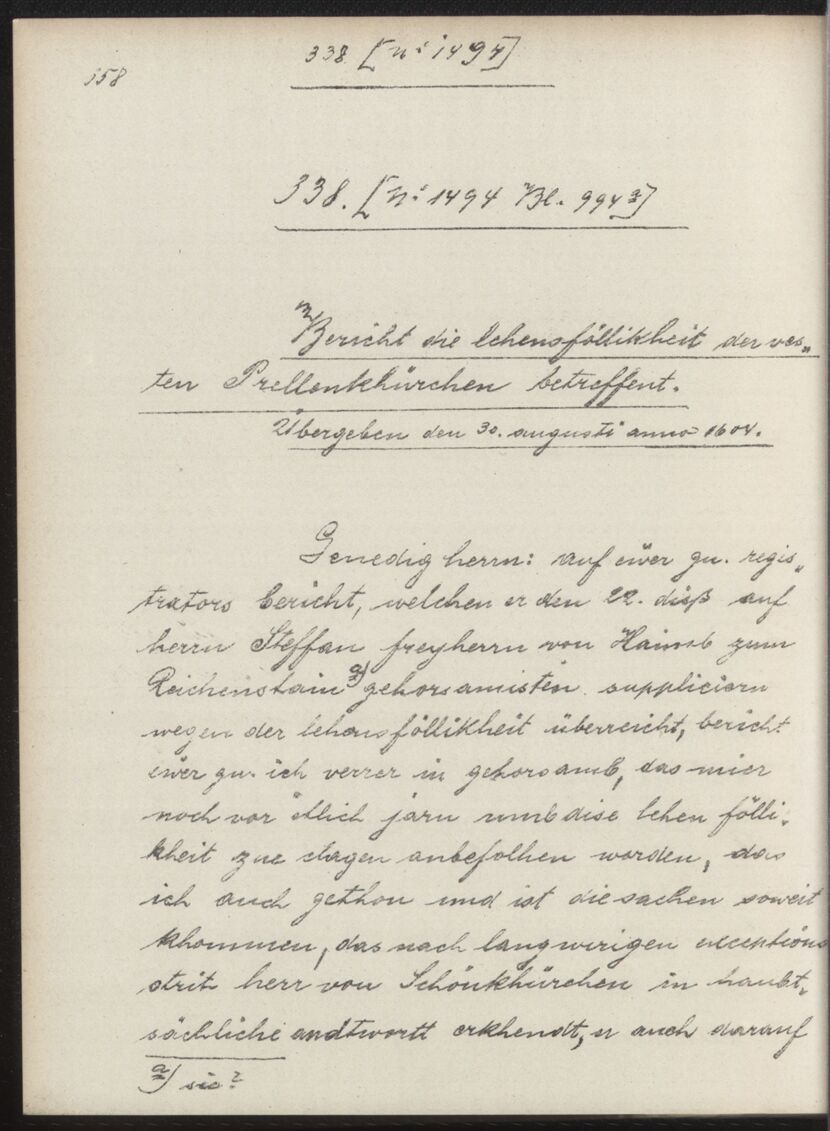 338 [N: 1494]
158
338. [N: 1494 Bl. 994 a]
Bericht die lehensföllikheit der ves„
ten Prellenkhürchen betreffent.
Übergeben den 30. augusti anno 1604.
Genedig herrn: auf eŵer gn. regis„
trators bericht, welchen er den 22. diß auf
herrn Steffan freyherrn von Haimb zum
Reichenstain a) gehorsamisten suppliciern
wegen der lehensföllikheit überreicht, bericht
eŵer gn. ich verrer in gehorsamb, das mier
noch vor etlich jarn umb dise lehen fölli„
kheit zue clagen anbefolhen worden, das
ich auch gethon und ist die sachen soweit
khommen, das nach langwirigen exceptions
strit herr von Schönkhürchen in haubt„
sächliche andtwortt erkhendt, er auch darauf
a) sic?